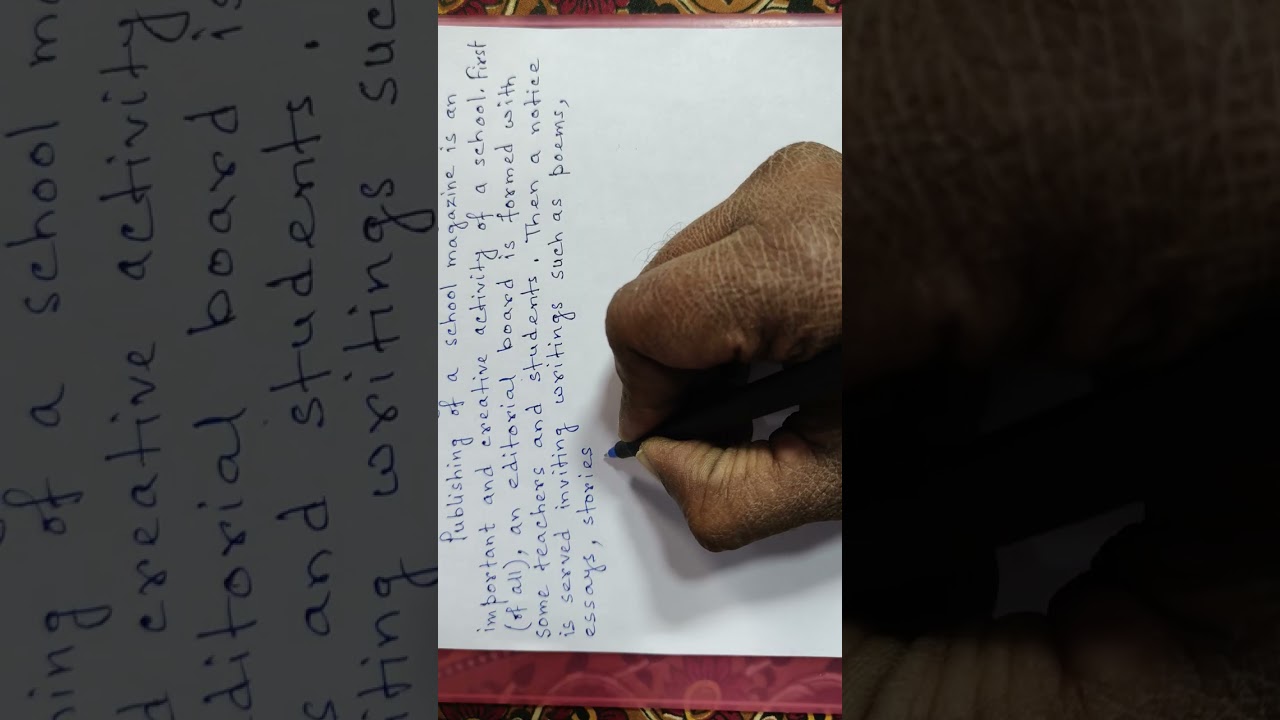 Publishing of a school magazine is an
important and creative activity of a school. First
(of all), an editorial board is formed with
some teachers and students. Then a notice
is served inviting writings such as poems,
essays, stories